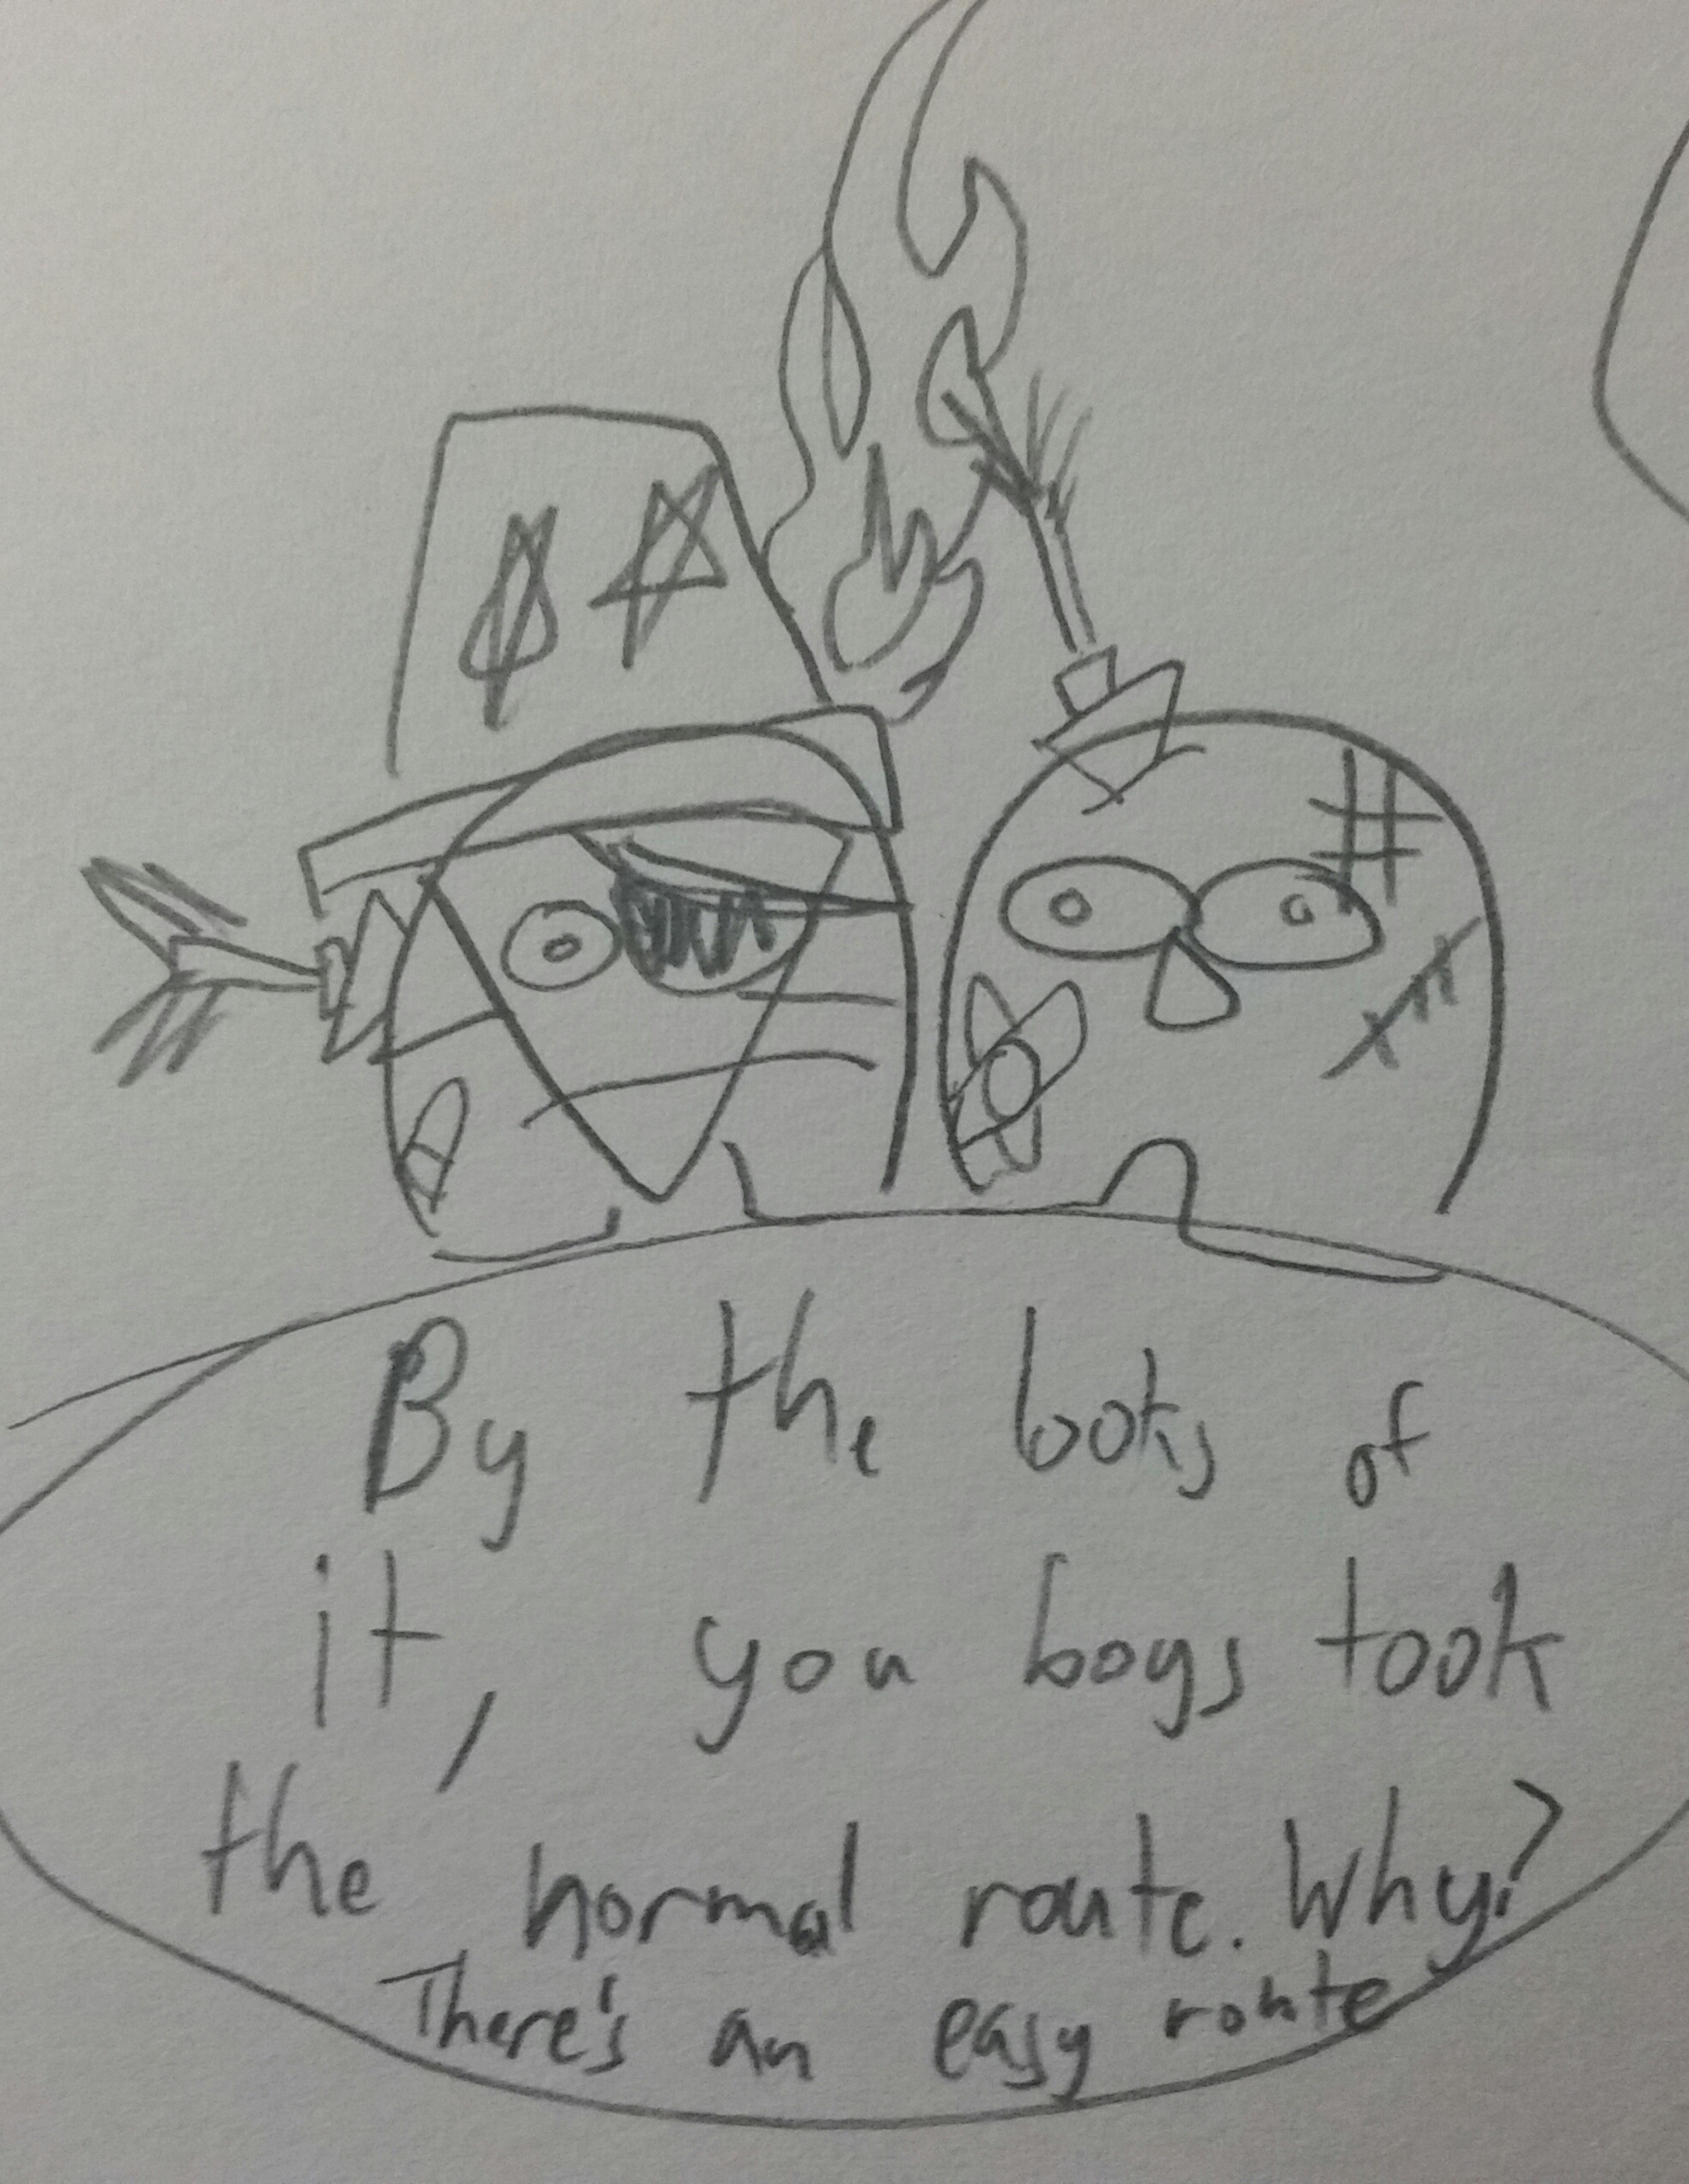 By the looks of
it, you boys took
the normal route. Why?
There's an easy route